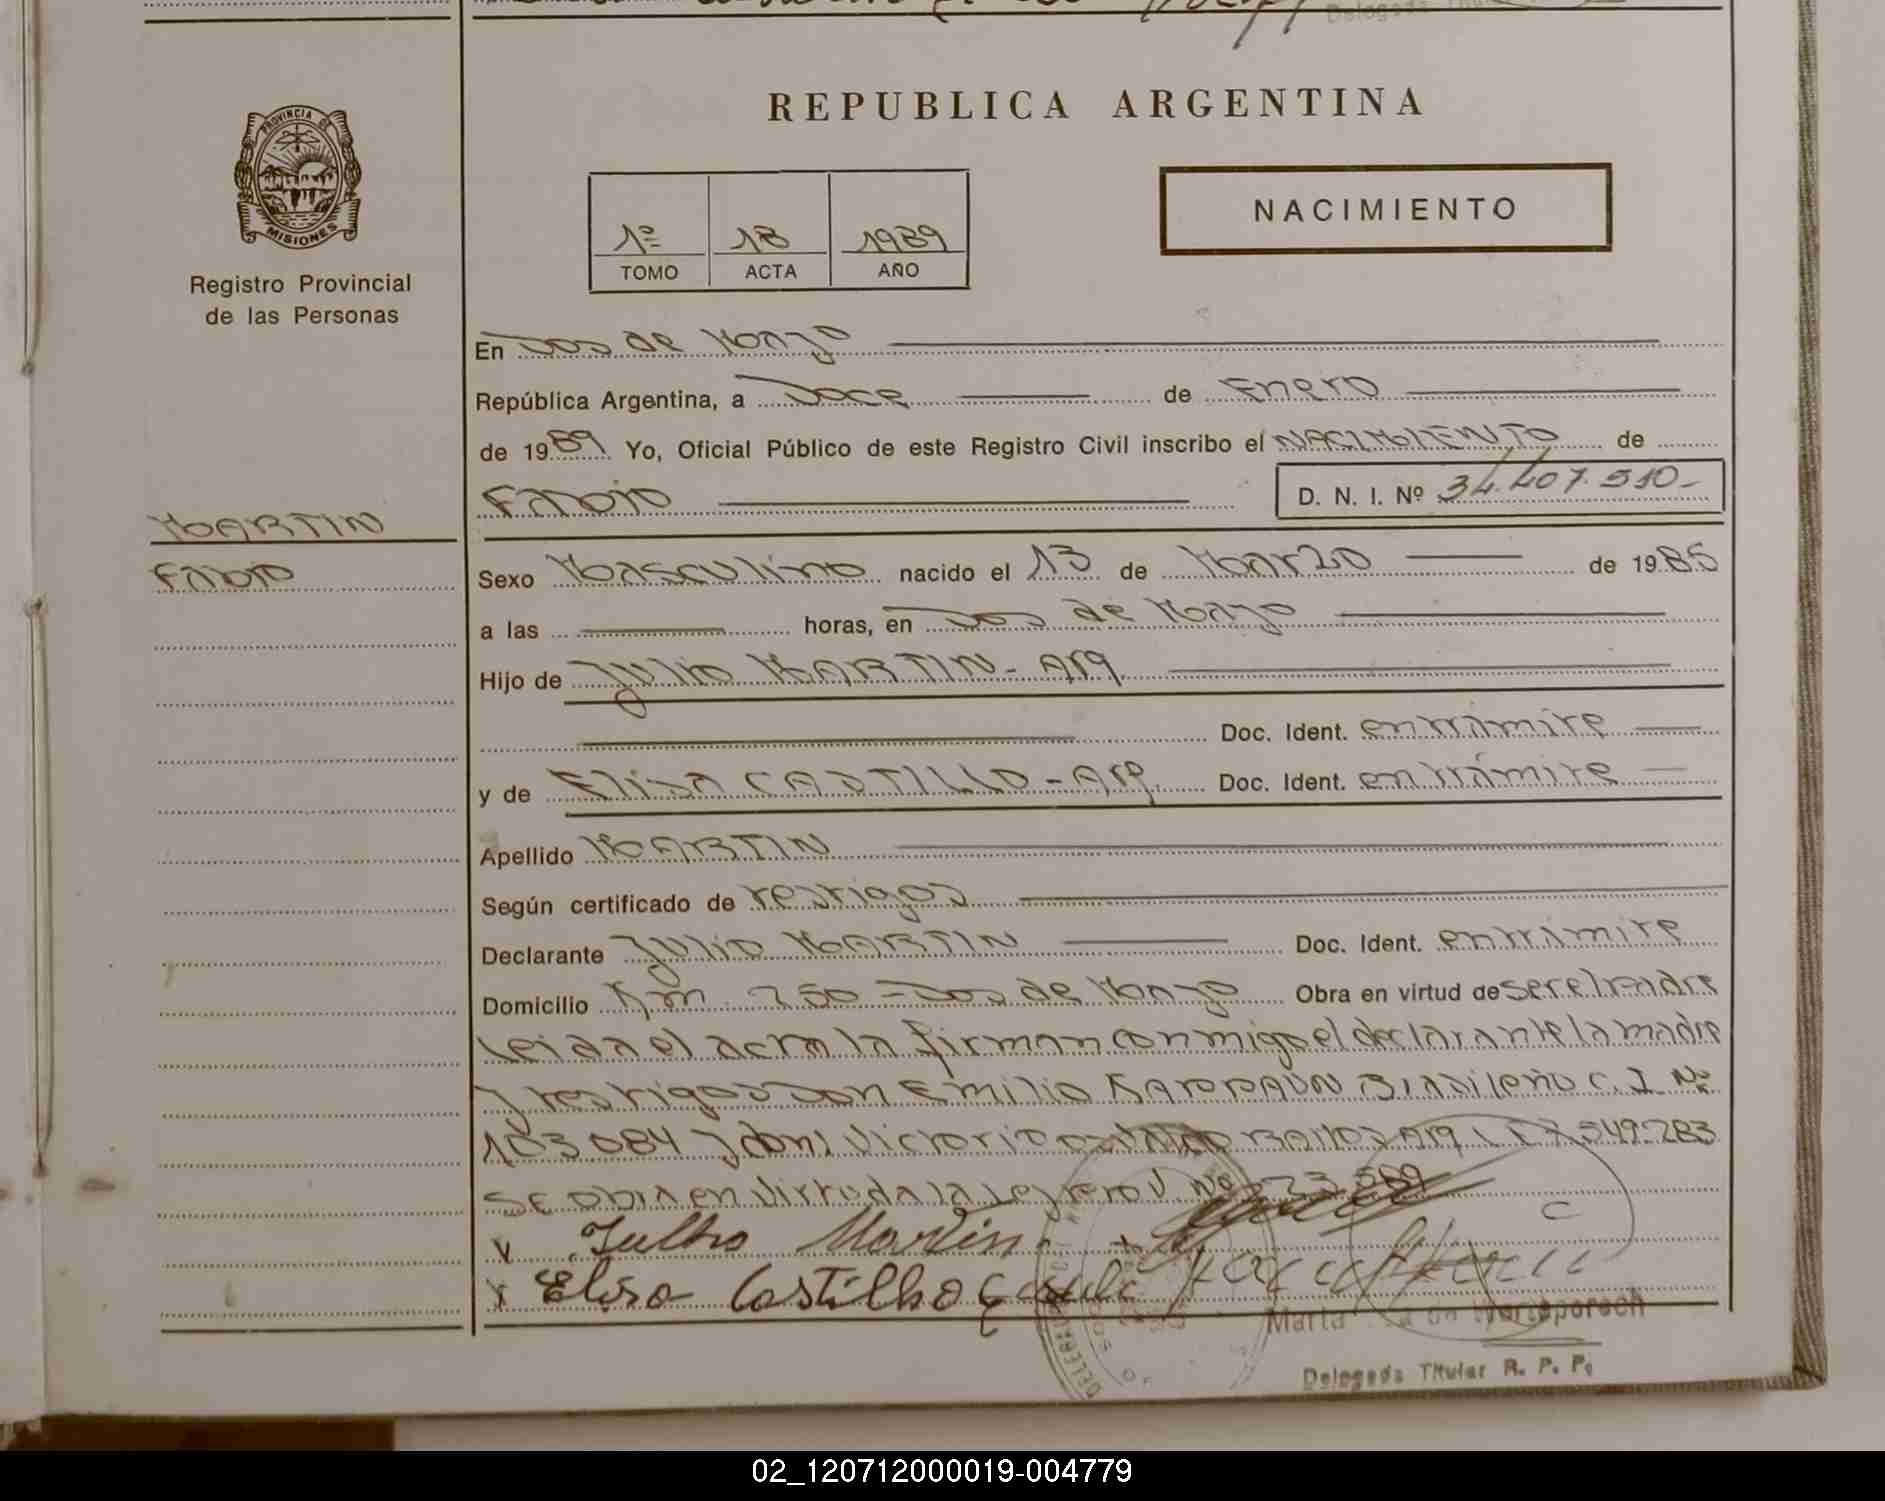 PROVINCIA DE
MISIONES
Registro Provincial
de las Personas
MARTIN
FABIO
REPUBLICA ARGENTINA
NACIMIENTO
1º 18 1989
TOMO ACTA AÑO
En Dos de Mayo
República Argentina, a Doce de Enero
de 1989 Yo, Oficial Público de este Registro Civil inscribo el NACIMIENTO de
FABIO D. N. I. Nº 34.407.510-
Sexo Masculino nacido el 13 de Marzo de 1985
a las horas, en Dos de Mayo
Hijo de Julio MARTIN - Arg
Doc. Ident. en trámite
y de Elisa CASTILLO - Arg. Doc. Ident. en trámite
Apellido MARTIN
Según certificado de testigos
Declarante Julio MARTIN Doc. Ident. en trámite
Domicilio Km. 250 - Dos de Mayo Obra en virtud de ser el padre
Leida el acta la firman conmigo el declarante la madre
y testigos Don Emilio Brasileño C. I. Nº
103084 y don Victorio Arg 7.549.283
se obra en virtud a la Ley Nº 23.589
x Julho Martin
x Elisa Castilho
Marta
Delegada Titular R. P. P.
02_120712000019-004779